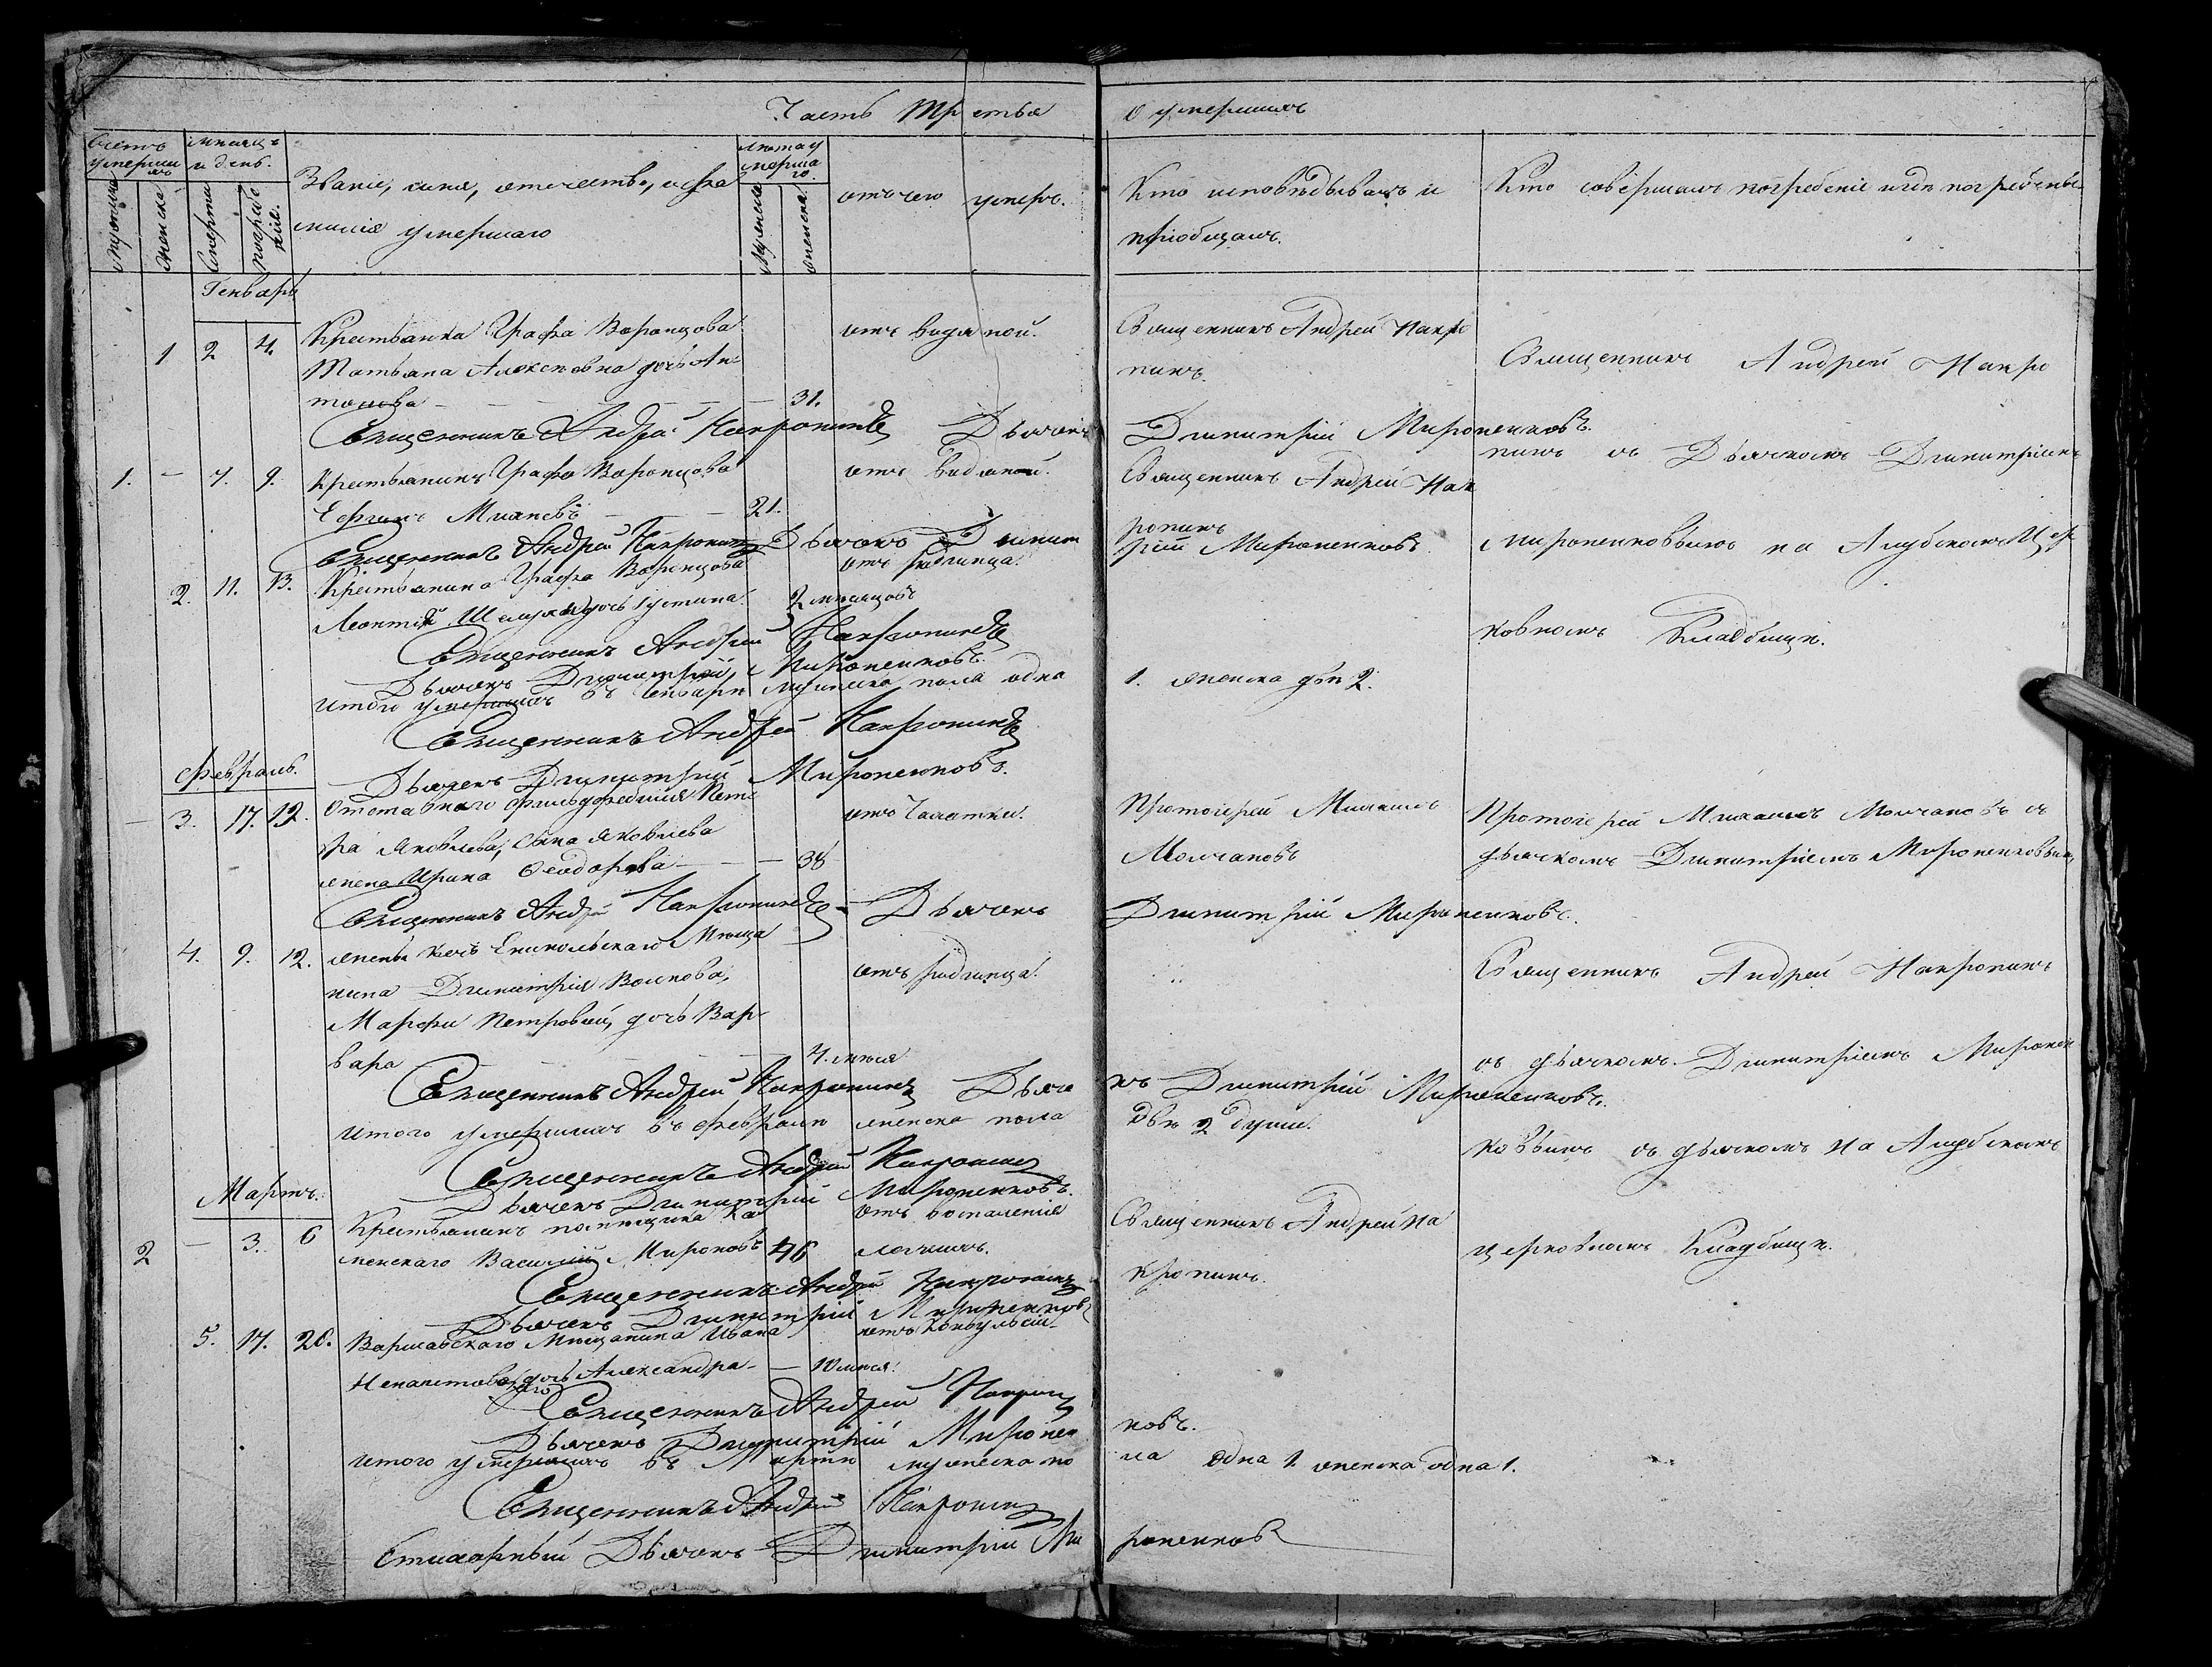 Часть Третья о умершихъ
Счетъ умершихъ
Мѣсяцъ и день.
Мужеска
Женска
Смерти
Погребенія.
Званіе, имя, отечество, и фамилія умершаго
Лѣта умершаго.
Мужеска
Женска.
отъ чего умеръ.
Кто исповѣдывалъ и
пріобщалъ.
Кто совершалъ погребеніе и гдѣ погребены
Генварь
1 2 4. Крестьянка Графа Воронцова
Татьяна Алексѣовна дочь Ан
тонова 31.
отъ водяной.
Священникъ Андрей Накро
пинъ.
Священникъ Андрей Накро
Священникъ Андрей Накропинъ Дьячекъ Димитрій Мироненковъ.
пинъ съ Дьячкомъ Димитріемъ
1. - 7. 9. Крестьянинъ Графа Воронцова 21.
отъ водяной.
Священникъ Андрей Нак
ропинъ
Священникъ Андрей Накропинъ Дьячекъ Димит
рій Мироненковъ.
Мироненковымъ на Алубскомъ Цер
2. 11. 13. Крестьянина Графа Воронцова
Леонтія дочь Устина. 2 мѣсяцовъ
отъ родимца.
ковномъ Кладбищѣ.
Священникъ Андрей Накропинъ
Дьячекъ Димитрій Мироненковъ.
Итого умершихъ въ Генварѣ мужеска пола одна
1. женска двѣ 2.
Священникъ Андрей Накропинъ
Дьячекъ Димитрій Мироненковъ.
Февраль.
3. 17. 19. Отставнаго фельдфебеля Пет
ра Яковлева, сына Яковлева
жена Ирина Феодорова 38
отъ Чахотки.
Протоіерей Михаилъ
Молчановъ
Протоіерей Михаилъ Молчановъ съ
дьячкомъ Димитріемъ Мироненковымъ
Священникъ Андрей Накропинъ Дьячекъ
Димитрій Мироненковъ.
4. 9. 12. Керчь Еникольскаго Мѣща
нина Димитрія Волкова,
Марфы Петровой, дочь Вар
вара 4. мѣся
отъ родимца.
Священникъ Андрей Накропинъ
съ дьячкомъ. Димитріемъ Миронен
Священникъ Андрей Накропинъ Дьяче
къ Димитрій Мироненковъ.
Итого умершихъ въ Февралѣ женска пола
двѣ 2 души.
ковымъ съ дьячкомъ на Алубскомъ
Священникъ Андрей Накропинъ
Дьячекъ Димитрій Мироненковъ.
Мартъ.
2 - 3. 6 Крестьянинъ помѣщика Ка
менскаго Василій Мироновъ 46
отъ воспаленія
легкихъ.
Священникъ Андрей На
кропинъ.
церковномъ Кладбищѣ.
Священникъ Андрей Накропинъ
Дьячекъ Димитрій Мироненковъ
5. 17. 20. Варшавскаго Мѣщанина Ивана
дочь Александра 10 мѣся.
отъ Конвульсіи
Священникъ Андрей Накропинъ
Дьячекъ Димитрій Миронен
ковъ.
Итого умершихъ въ Мартѣ мужеска по
ла одна 1. женска одна 1.
Священникъ Андрей Накропинъ
Стихарный Дьячекъ Димитрій Ми
роненковъ